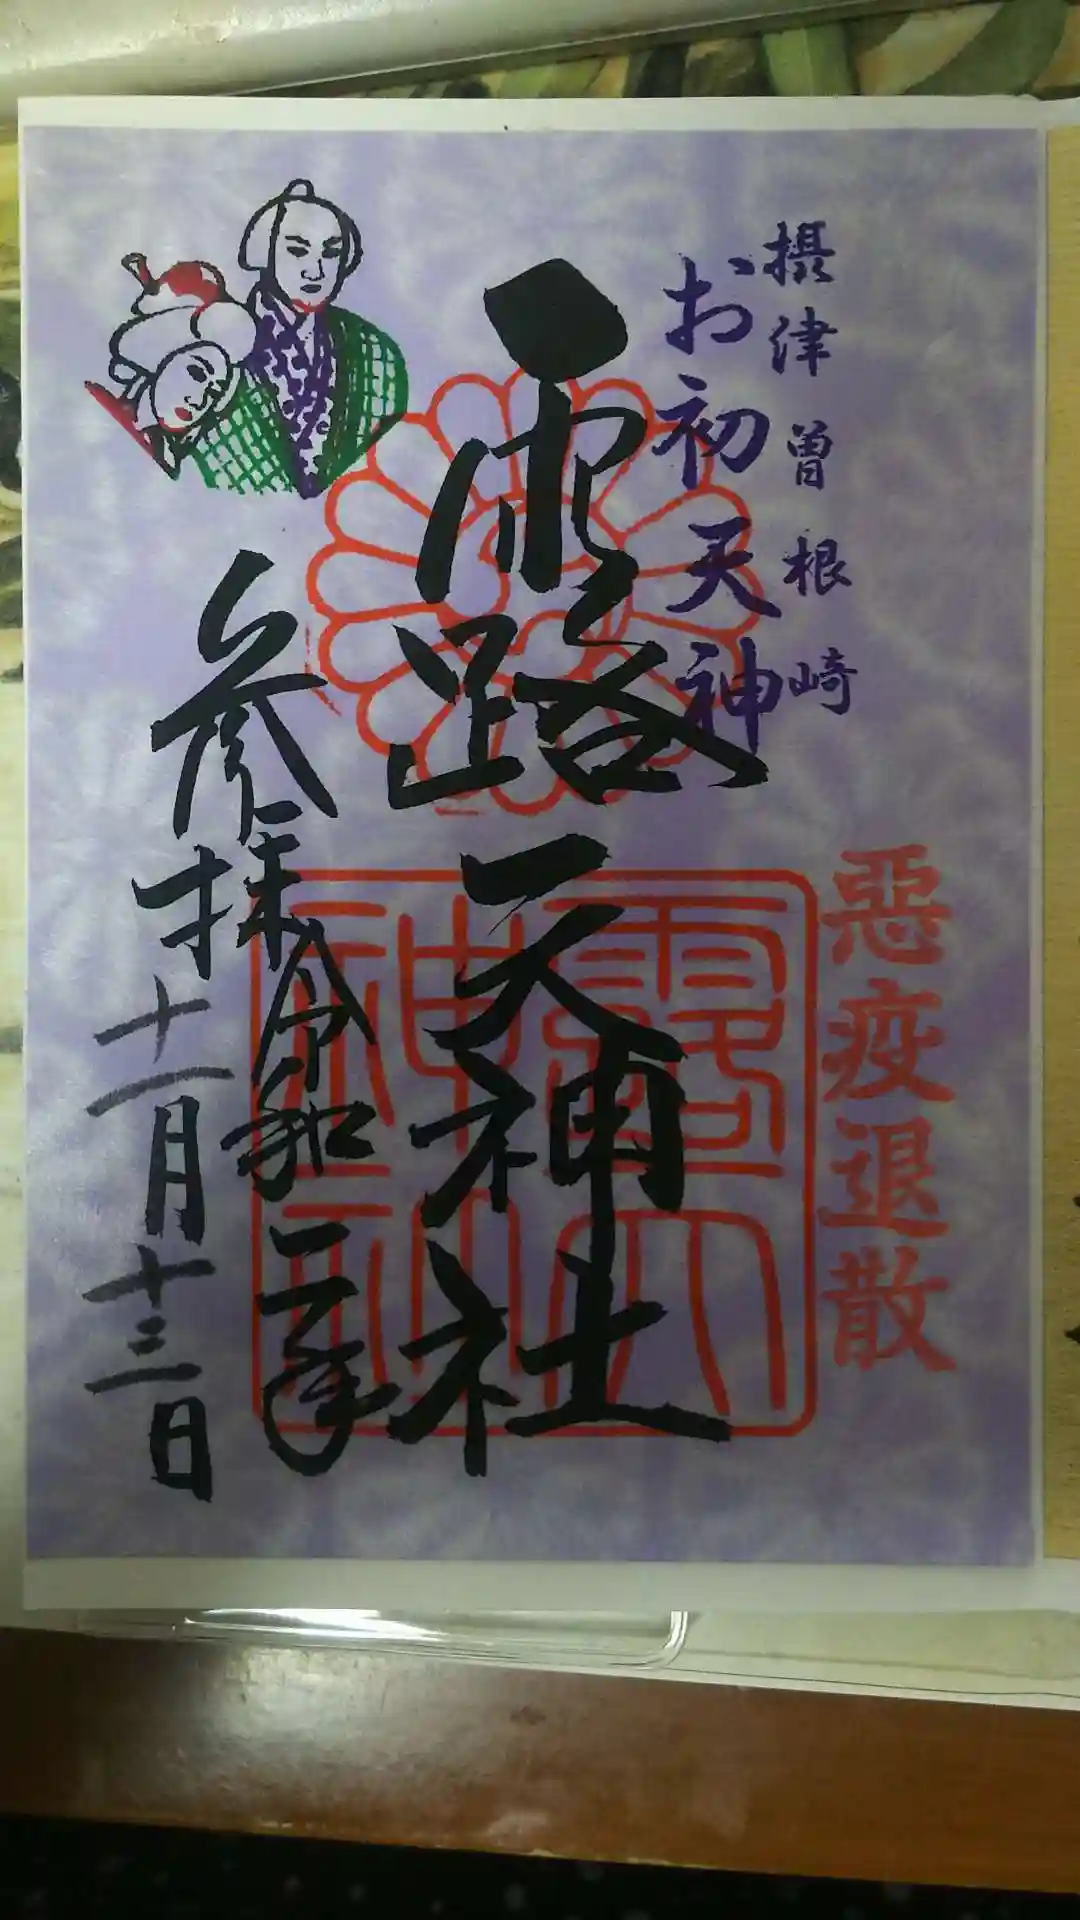 摂津曽根崎
お初天神
惡疫退散
露天神社
露天神社
参拝
令和二年
十一月十三日